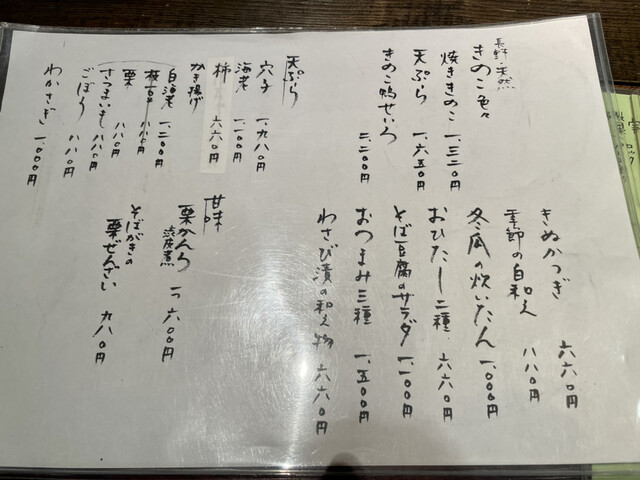 長野・天然
きのこ色々
焼ききのこ 一、三二〇円
天ぷら 一、六五〇円
きのこ鴨せいろ
二、二〇〇円
天ぷら
穴子 一、九八〇円
海老 一、一〇〇円
柿 六六〇円
かき揚げ
白海老 一、二〇〇円
八八〇円
栗 八八〇円
さつまいも 八八〇円
ごぼう 八八〇円
わかさぎ 一、〇〇〇円
きぬかつぎ 六六〇円
季節の白和え 八八〇円
冬瓜の炊いたん 一、〇〇〇円
おひたし二種 六六〇円
そば豆腐のサラダ 一、一〇〇円
おつまみ三種 一、五〇〇円
わさび漬の和え物 六六〇円
甘味
栗かんろ
渋皮煮 一ヶ 六〇〇円
そばがきの
栗ぜんざい 九八〇円